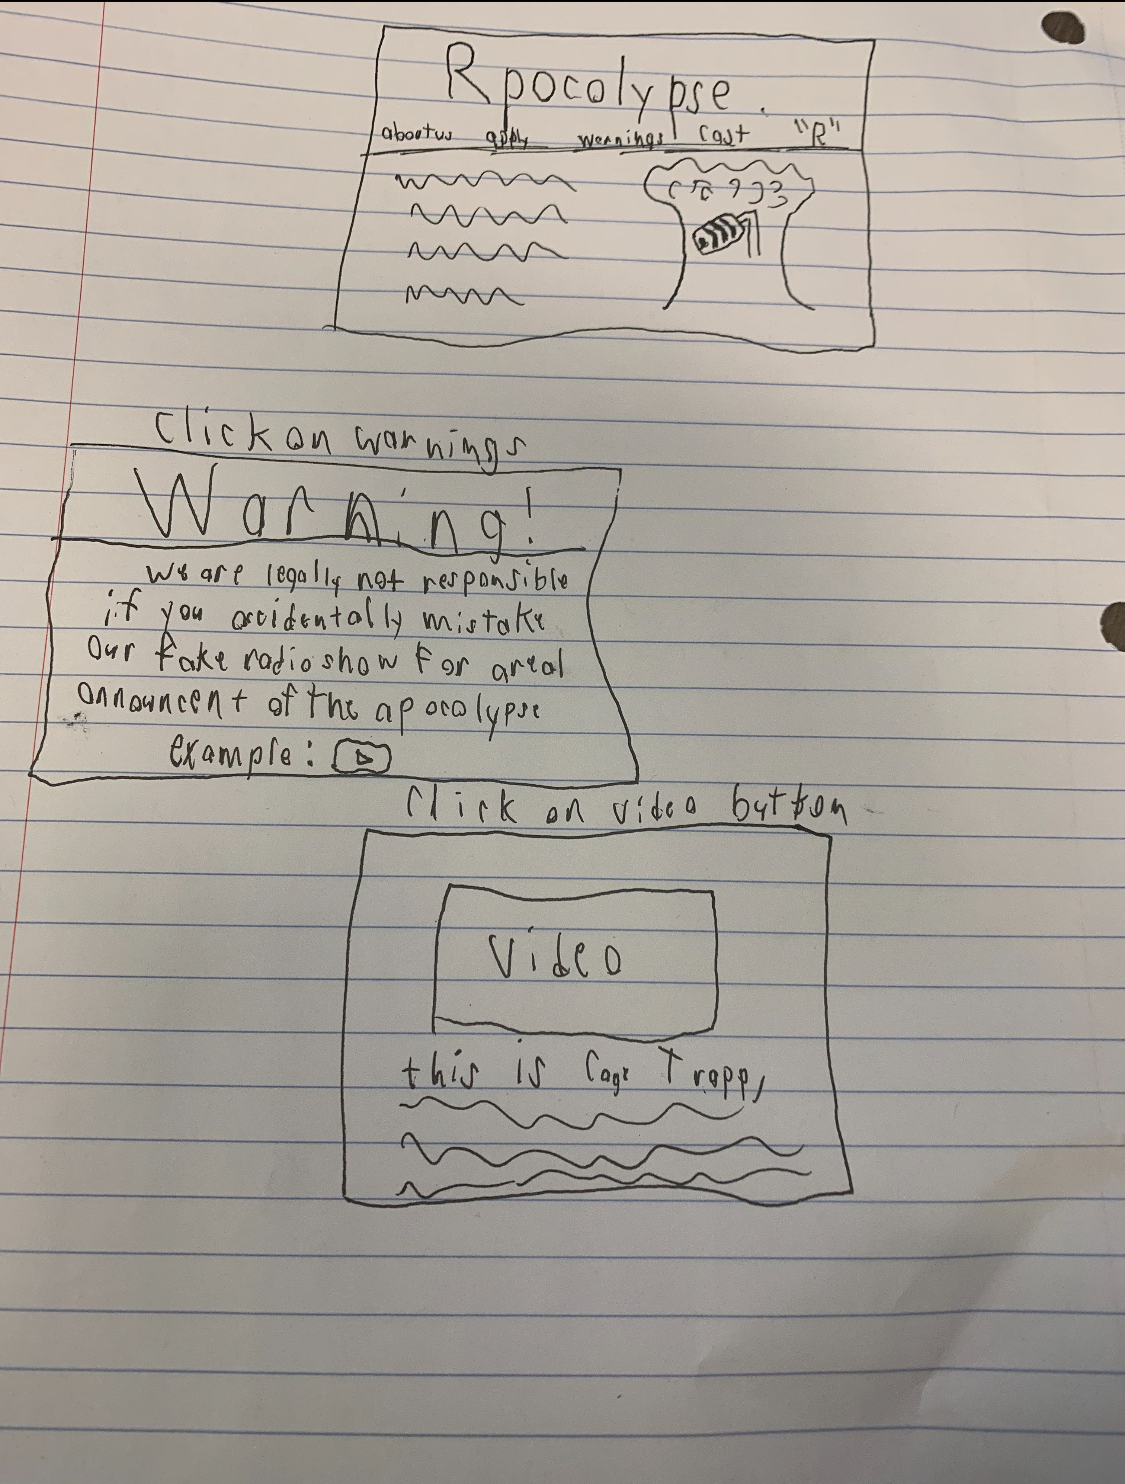 Rpocolypse.
aboutus apply warnings cast "R"
Click on warnings
Warning!
we are legally not responsible
if you accidentally mistake
our fake radio show for a real
announcent of the apocolypse
example:
Click on video button
Video
this is Cage Trapp,